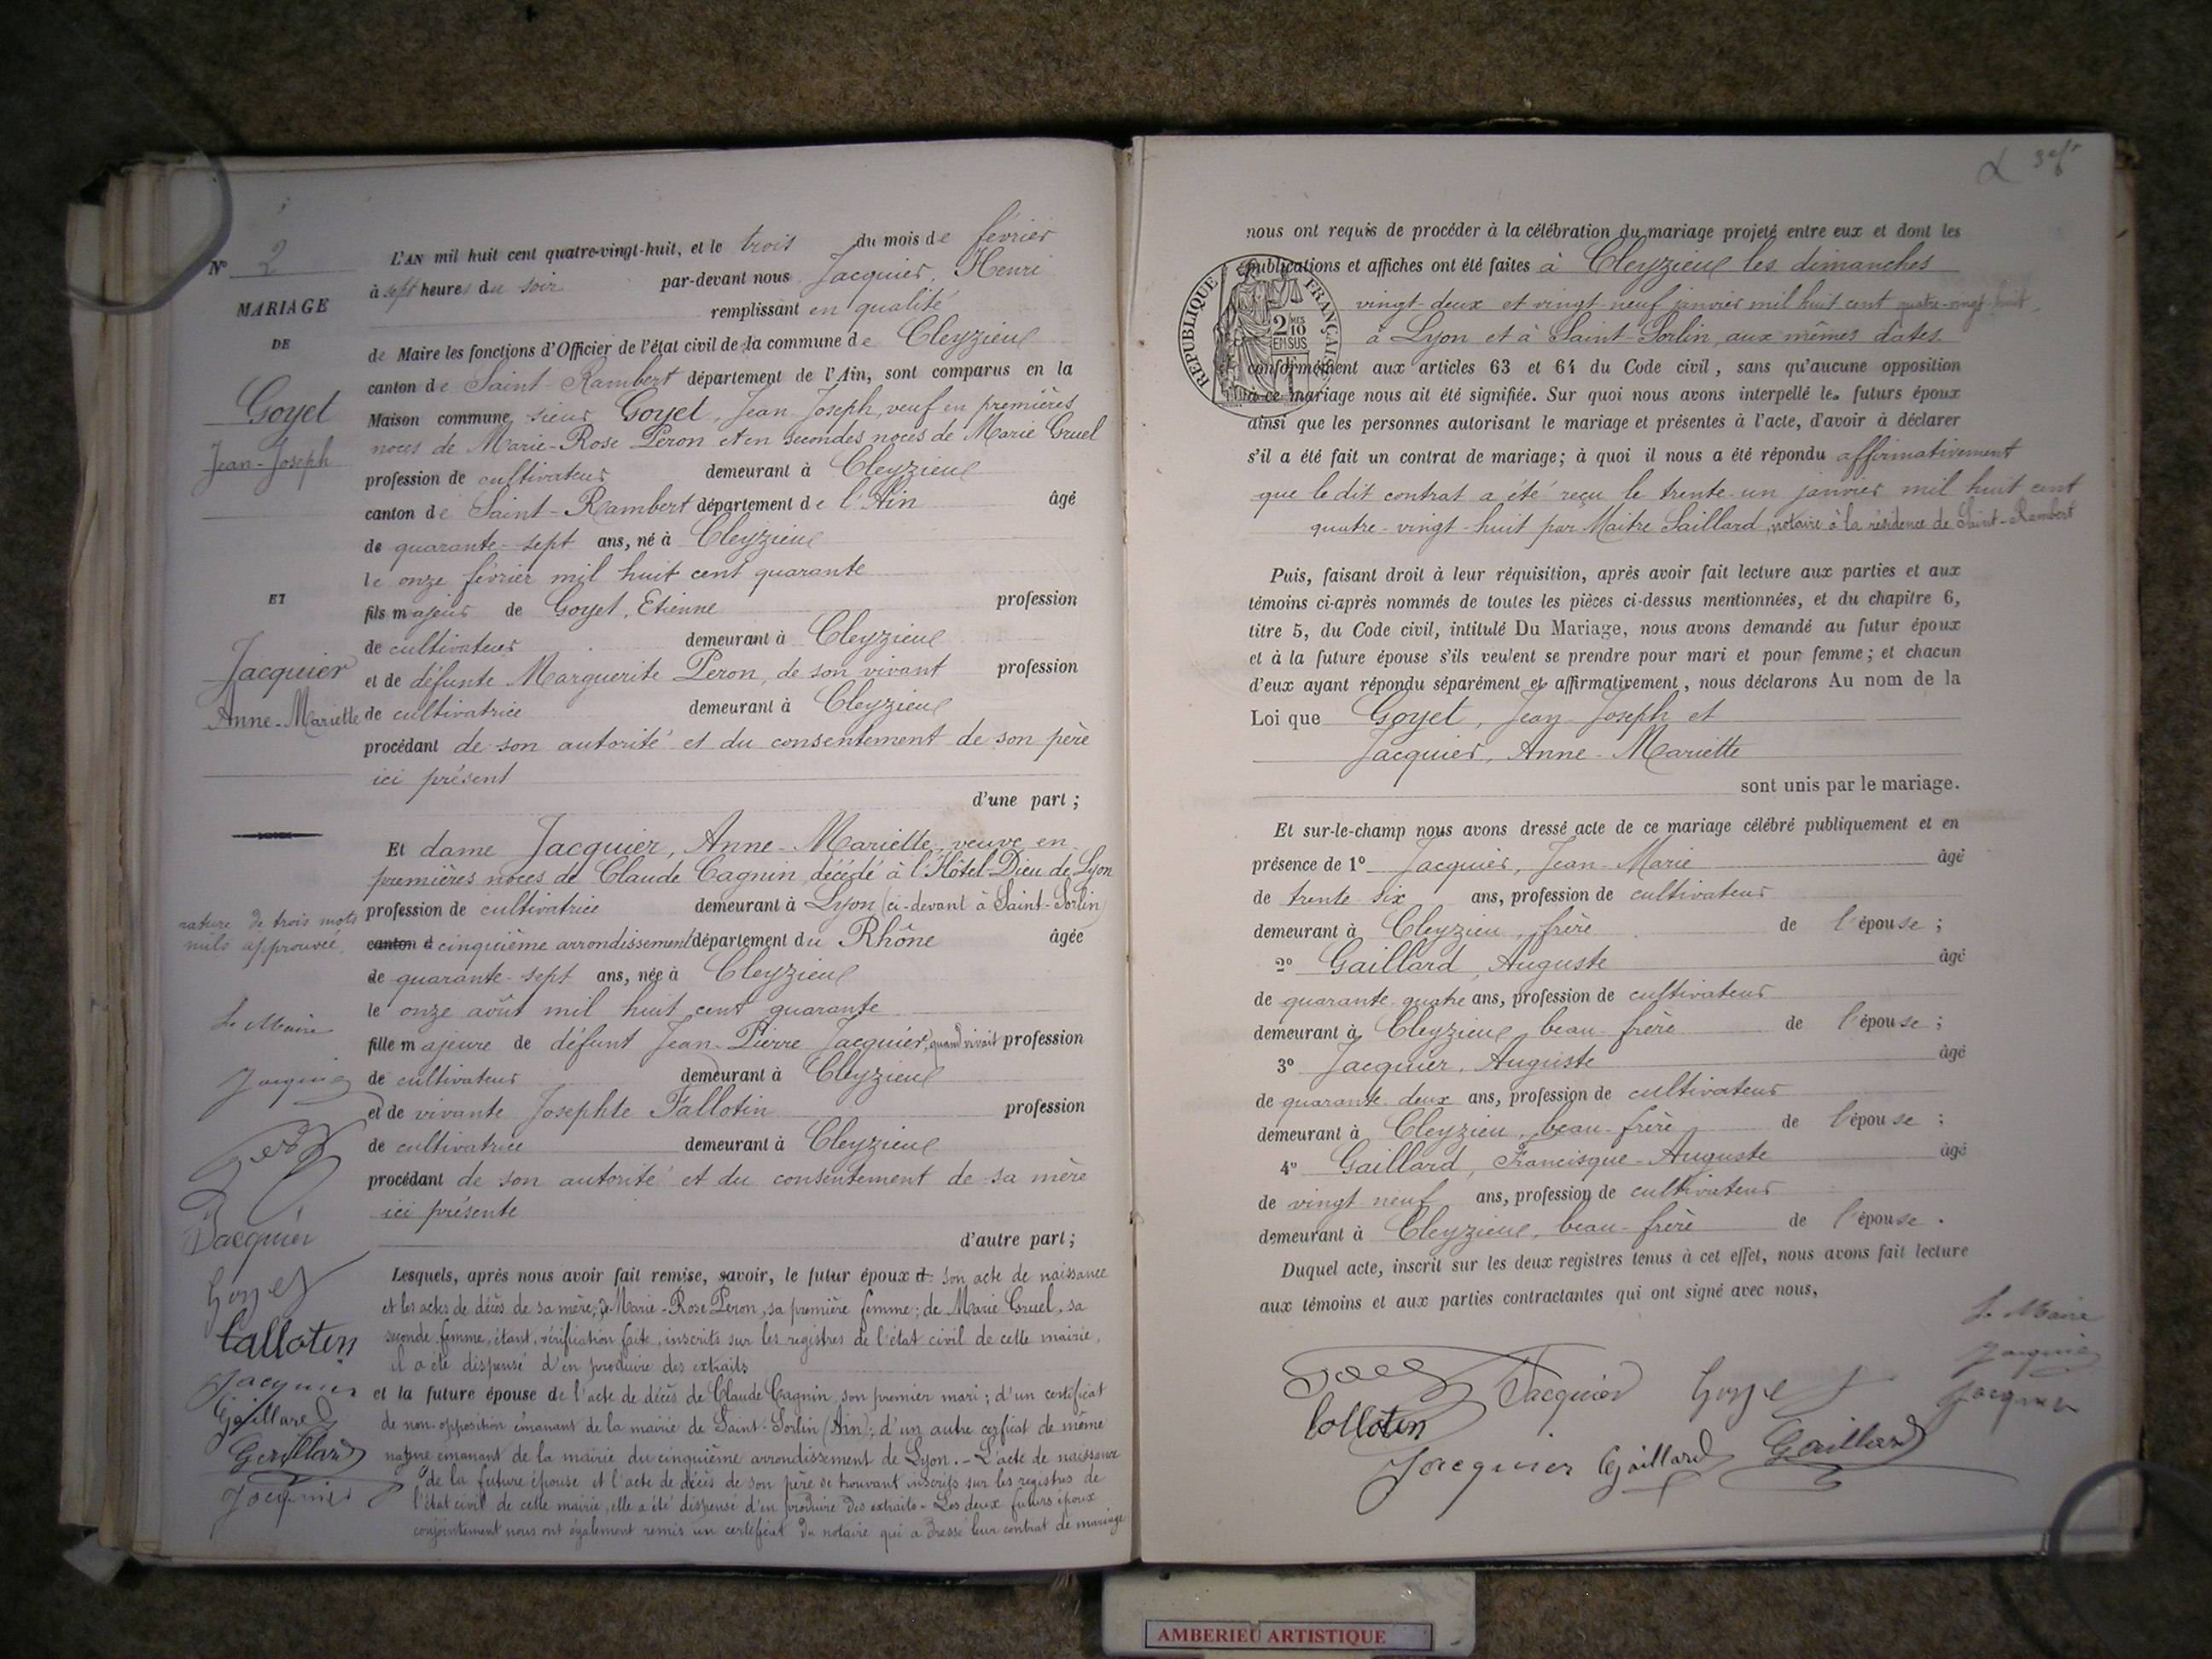 N° 2
MARIAGE
DE
Goyet
Jean-Joseph
ET
Jacquier
Anne-Mariette
rature de trois mots
nuls approuvée.
Le Maire
Jacquier
Jacquier
Goyet
Callotin
Jacquier
Gaillard
Gaillard
Jacquier
L'AN mil huit cent quatre-vingt-huit, et le trois du mois de février
à sept heures du soir par-devant nous Jacquier, Henri
remplissant en qualité
de Maire les fonctions d'Officier de l'état civil de la commune de Cleyzieu
canton de Saint-Rambert département de l'Ain, sont comparus en la
Maison commune, sieur Goyet, Jean-Joseph, veuf en premières
noces de Marie-Rose Peron et en secondes noces de Marie Gruel
profession de cultivateur demeurant à Cleyzieu
canton de Saint-Rambert département de l'Ain âgé
de quarante-sept ans, né à Cleyzieu
le onze février mil huit cent quarante
fils majeur de Goyet, Etienne profession
de cultivateur demeurant à Cleyzieu
et de défunte Marguerite Peron, de son vivant profession
de cultivatrice demeurant à Cleyzieu
procédant de son autorité et du consentement de son père
ici présent
d'une part ;
Et dame Jacquier, Anne-Mariette, veuve en
premières noces de Claude Cagnin, décédé à l'Hôtel-Dieu de Lyon
profession de cultivatrice demeurant à Lyon (ci-devant à Saint-Sorlin)
canton d cinquième arrondissement département du Rhône âgée
de quarante-sept ans, née à Cleyzieu
le onze août mil huit cent quarante
fille majeure de défunt Jean-Pierre Jacquier, quand vivait profession
de cultivateur demeurant à Cleyzieu
et de vivante Josephte Fallotin profession
de cultivatrice demeurant à Cleyzieu
procédant de son autorité et du consentement de sa mère
ici présente
d'autre part ;
Lesquels, après nous avoir fait remise, savoir, le futur époux d son acte de naissance
et les actes de décès de sa mère; de Marie-Rose Peron, sa première femme; de Marie Gruel, sa
seconde femme, étant, vérification faite, inscrits sur les registres de l'état civil de cette mairie,
il a été dispensé d'en produire des extraits
et la future épouse de l'acte de décès de Claude Cagnin, son premier mari ; d'un certificat
de non-opposition émanant de la mairie de Saint-Sorlin (Ain); d'un autre cerficat de même
nature émanant de la mairie du cinquième arrondissement de Lyon. - L'acte de naissance
de la future épouse et l'acte de décès de son père se trouvant inscrits sur les registres de
l'état civil de cette mairie, elle a été dispensé d'en produire des extraits - Les deux futurs époux
conjointement nous ont également remis un certificat du notaire qui a dressé leur contrat de mariage
nous ont requis de procéder à la célébration du mariage projeté entre eux et dont les
publications et affiches ont été faites à Cleyzieu les dimanches
vingt-deux et vingt-neuf janvier mil huit cent quatre-vingt-huit,
à Lyon et à Saint-Sorlin, aux mêmes dates.
RÉPUBLIQUE FRANÇAISE
2 MES
10
EN SUS
conformément aux articles 63 et 64 du Code civil, sans qu'aucune opposition
à ce mariage nous ait été signifiée. Sur quoi nous avons interpellé les futurs époux
ainsi que les personnes autorisant le mariage et présentes à l'acte, d'avoir à déclarer
s'il a été fait un contrat de mariage; à quoi il nous a été répondu affirmativement
que le dit contrat a été reçu le trente-un janvier mil huit cent
quatre-vingt-huit par Maitre Saillard, notaire à la résidence de Saint-Rambert
Puis, faisant droit à leur réquisition, après avoir fait lecture aux parties et aux
témoins ci-après nommés de toutes les pièces ci-dessus mentionnées, et du chapitre 6,
titre 5, du Code civil, intitulé Du Mariage, nous avons demandé au futur époux
et à la future épouse s'ils veulent se prendre pour mari et pour femme ; et chacun
d'eux ayant répondu séparément et affirmativement, nous déclarons Au nom de la
Loi que Goyet, Jean-Joseph et
Jacquier, Anne-Mariette
sont unis par le mariage.
Et sur-le-champ nous avons dressé acte de ce mariage célébré publiquement et en
présence de 1° Jacquier, Jean-Marie âgé
de trente-six ans, profession de cultivateur
demeurant à Cleyzieu, frère de l'épouse ;
2° Gaillard, Auguste âgé
de quarante-quatre ans, profession de cultivateur
demeurant à Cleyzieu, beau-frère de l'épouse ;
3° Jacquier, Auguste âgé
de quarante-deux ans, profession de cultivateur
demeurant à Cleyzieu, beau-frère de l'épouse ;
4° Gaillard, Francisque-Auguste âgé
de vingt-neuf ans, profession de cultivateur
demeurant à Cleyzieu, beau-frère de l'épouse.
Duquel acte, inscrit sur les deux registres tenus à cet effet, nous avons fait lecture
aux témoins et aux parties contractantes qui ont signé avec nous,
Le Maire
Jacquier
Jacquier
Goyet
Jacquier
Collotin
Jacquier
Gaillard
Gaillard
AMBERIEU ARTISTIQUE